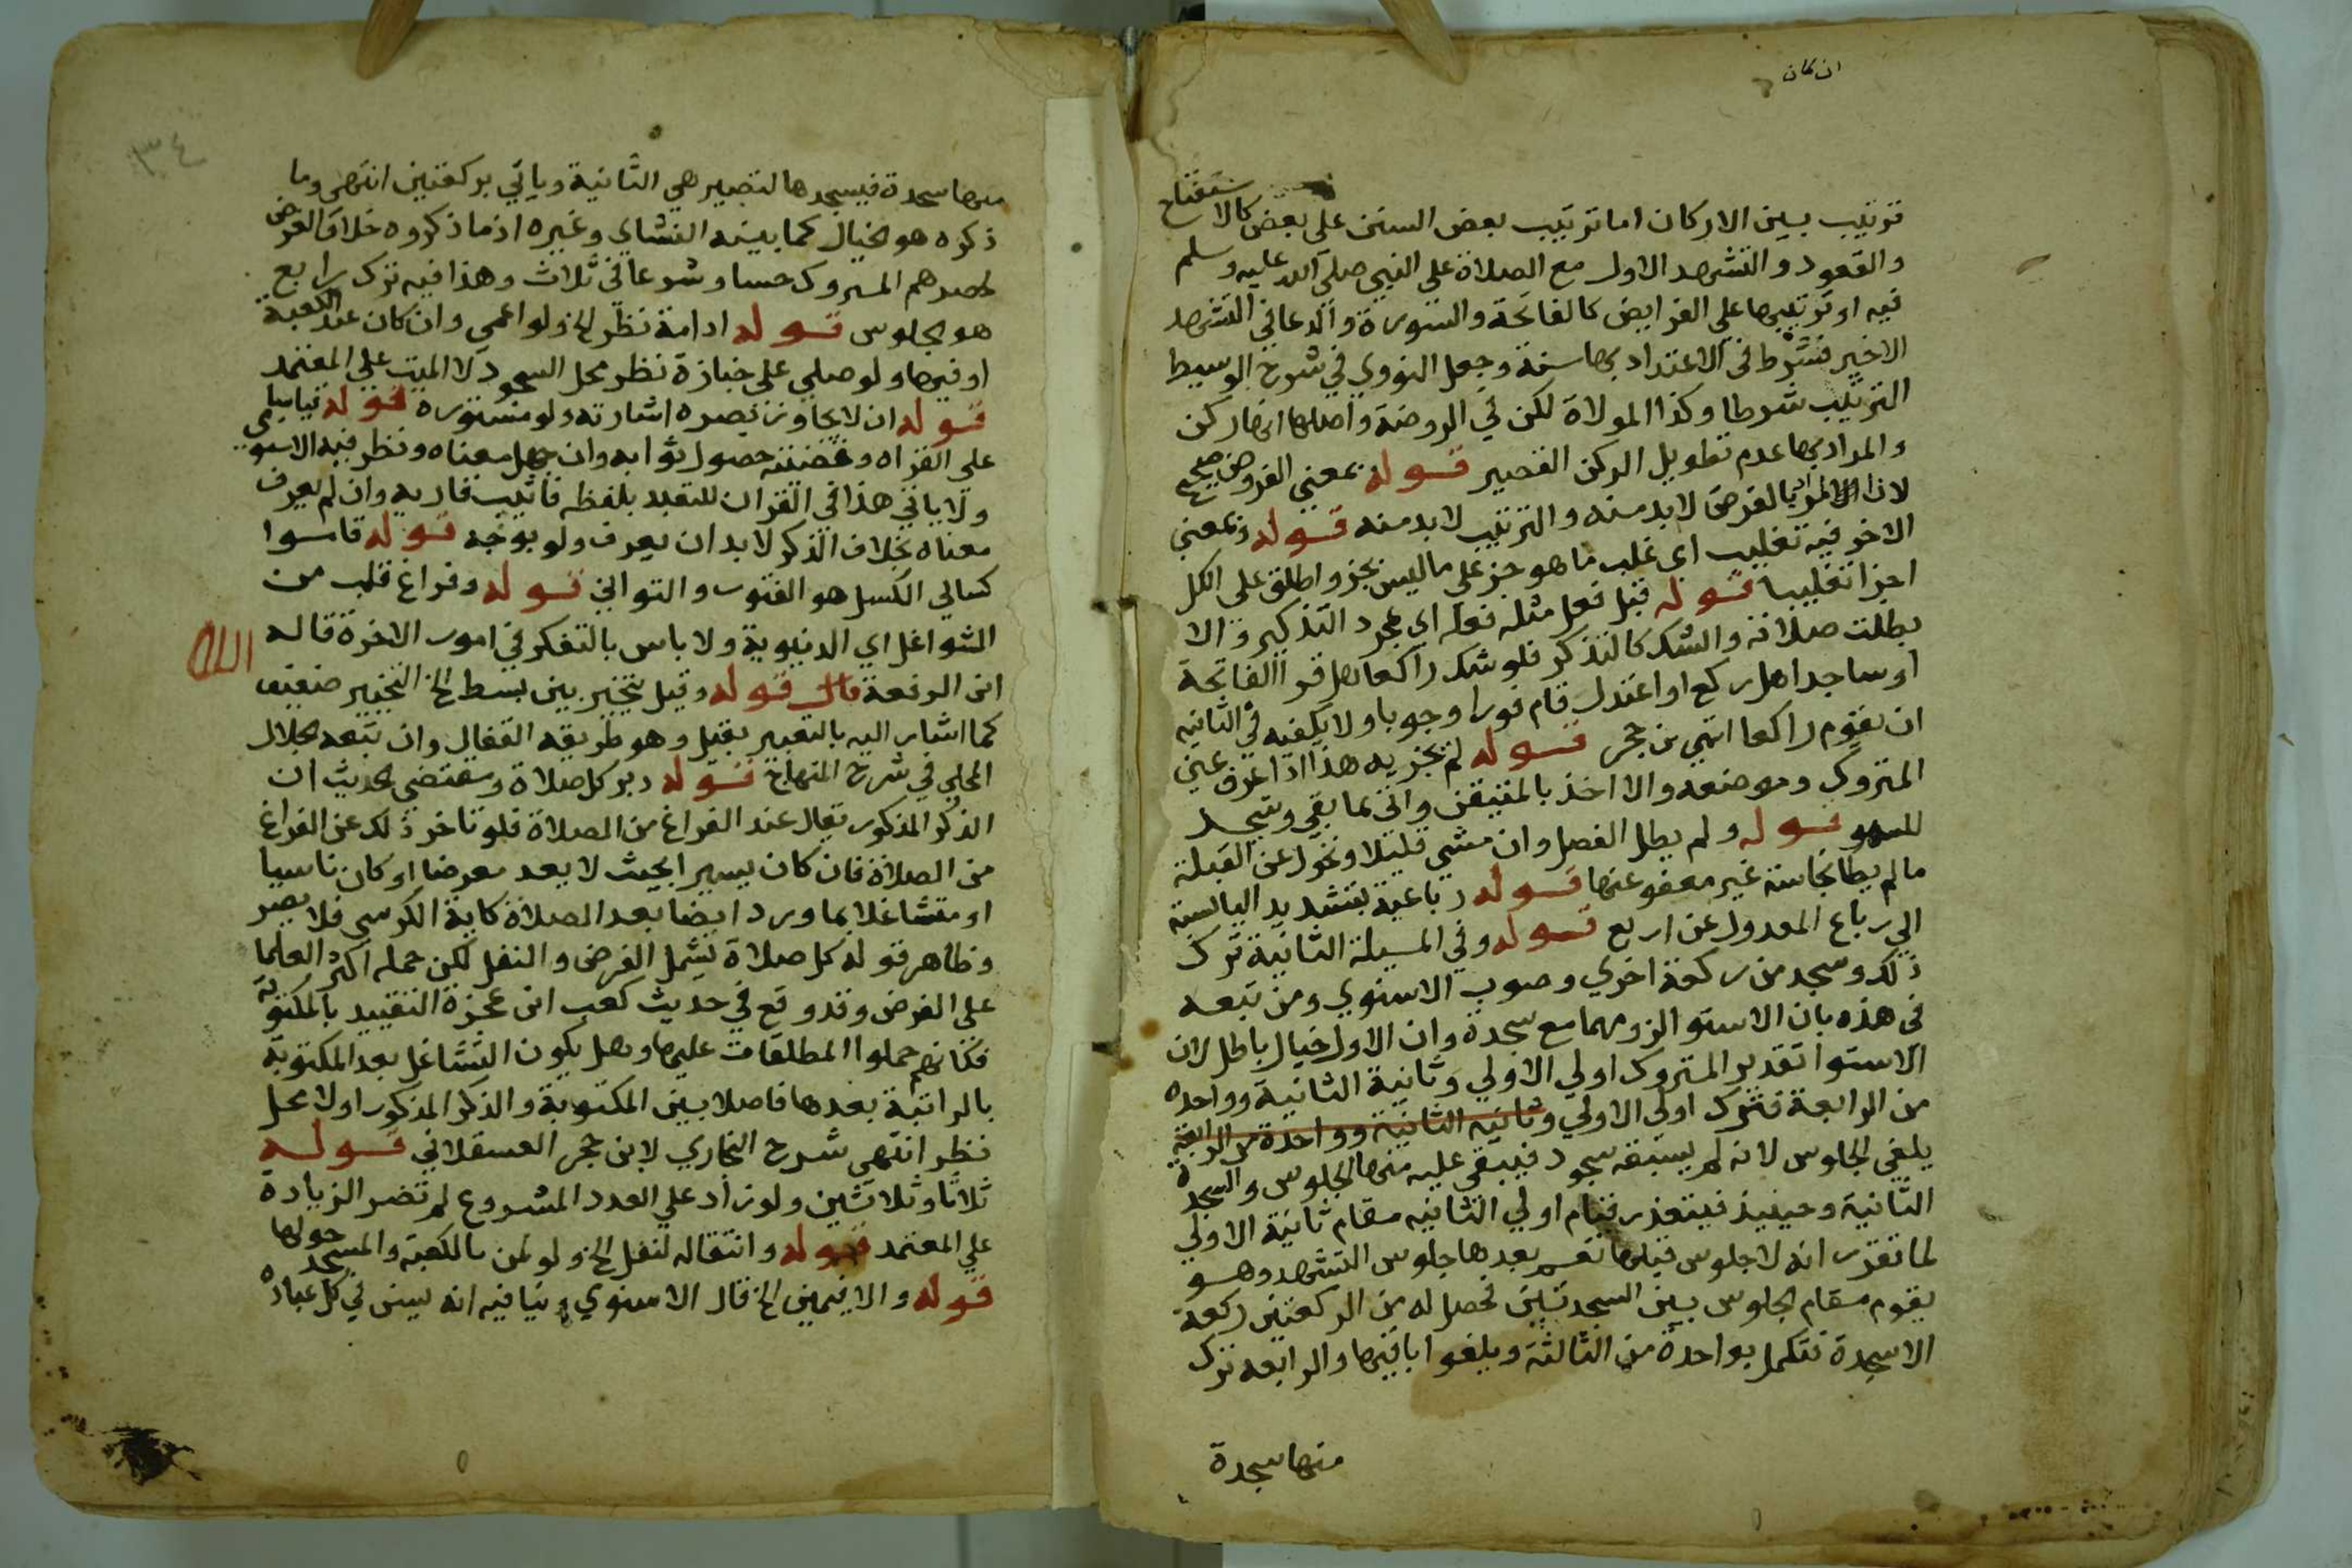 ان كان
ترتيب بين الاركان اما ترتيب بعض السنن على بعض كالاستفتاح
والقعود والتشهد الاول مع الصلاة على النبي صلى الله عليه وسلم
فيه او ترتيبها على الفرايض كالفاتحة والسورة والدعا في التشهد
الاخير فشرط في الاعتداد بها سنة وجعل النووي في شرح الوسيط
الترتيب شرطا وكذا الموالاة لكن في الروضة واصلها انها ركن
والمراد بها عدم تطويل الركن القصير قوله بمعني الفروض صحيح
لان المراد بالفرض لا بد منه والترتيب لا بد منه قوله وبمعني
الاخر فيه تغليب اي غلب ما هو جز على ما ليس بجز واطلق على الكل
اجزا تغليبا قوله قبل فعل مثله فعله اي بمجرد التذكير والا
بطلت صلاته والشك كالتذكر فلو شك راكعا هل قرا الفاتحة
او ساجدا هل ركع او اعتدل قام فورا وجوبا ولا يكفيه في الثانيه
ان يقوم راكعا انتهي بن حجر قوله لم يجزيه هذا اذا عرف عين
المتروك وموضعه والا اخذ بالمتيقن واتى بما بقي وسجد
للسهو قوله ولم يطل الفصل وان مشي قليلا وتحول عن القبلة
ما لم يطا نجاسة غير معفو عنها قوله رباعية بتشديد اليا نسبة
الي رباع المعدول عن اربع قوله وفي المسيلة الثانية ترك
ذلك وسجد من ركعة اخري وصوب الاسنوي ومن تبعه
في هذه بان الاستوا لزومهما مع سجدة وان الاول خيال باطل لان
الاستوا تقدير المتروك اولي الاولي وثانية الثانية وواحده
من الرابعة فترك اولي الاولي وثانية الثانية وواحدة من الرابعة
يلغي الجلوس لانه لم يسبقه سجود فيبقى عليه منها الجلوس والسجدة
الثانية وحينيذ فيتعذر قيام اولي الثانيه مقام ثانية الاولي
لما تقرر انه لا جلوس قبلها نعم بعدها جلوس التشهد وهو
يقوم مقام الجلوس بين السجدتين فحصل له من الركعتين ركعة
الا سجدة تتكمل بواحدة من الثالثة ويلغوا باقيها والرابعه ترك
منها سجدة
٣٤
منها سجدة فيسجدها لتصير هي الثانية وياتي بركعتين انتهى وما
ذكره هو الخيال كما بينه النشاي وغيره اذ ما ذكروه خلاف الفرض
لحصرهم المتروك حسا وشرعا في ثلاث وهذا فيه ترك رابع
هو الجلوس قوله ادامة نظر الخ ولو اعمي وان كان عند الكعبة
او فيها ولو صلي على جنازة نظر محل السجود لا الميت على المعتمد
قوله ان لا يجاوز بصره اشارته ولو مستوره قوله قياسا
على القراه وقضيته حصول ثوابه وان جهل معناه ونظر فيه الاسنوي
ولا ياتي هذا في القران للتعبد بلفظه فاثيب قاريه وان لم يعرف
معناه بخلاف الذكر لا بد ان يعرف ولو بوجه قوله قاسوا
كسالي الكسل هو الفتور والتواني قوله وفراغ قلب من
الشواغل اي الدنيوية ولا باس بالتفكر في امور الاخرة قاله
ابن الرفعة قوله وقيل يتخير بين بسط الخ التخيير ضعيف
كما اشار اليه بالتعبير بقيل وهو طريقه القفال وان تبعه الجلال
المحلي في شرح المنهاج قوله دبر كل صلاة ومقتضي الحديث ان
الذكر المذكور يقال عند الفراغ من الصلاة فلو تاخر ذلك عن الفراغ
من الصلاة فان كان يسيرا بحيث لا يعد معرضا او كان ناسيا
او متشاغلا بما ورد ايضا بعد الصلاة كاية الكرسي فلا يضر
وظاهر قوله كل صلاة يشمل الفرض والنفل لكن حمله اكثر العلما
على الفرض وقد وقع في حديث كعب ابن عجزة التقييد بالمكتوبة
فكانهم حملوا المطلقات عليها وهل يكون التشاغل بعد المكتوبة
بالراتبة بعدها فاصلا بين المكتوبة والذكر المذكور اولا محل
نظر انتهى شرح البخاري لابن حجر العسقلاني قوله
ثلاثا وثلاثين ولو زاد على العدد المشروع لم تضر الزيادة
على المعتمد قوله وانتقاله لنفل الخ ولو لمن بالكعبة والمسجد حولها
قوله والا فيمين الخ قال الاسنوي وينافيه انه يسن في كل عبادة